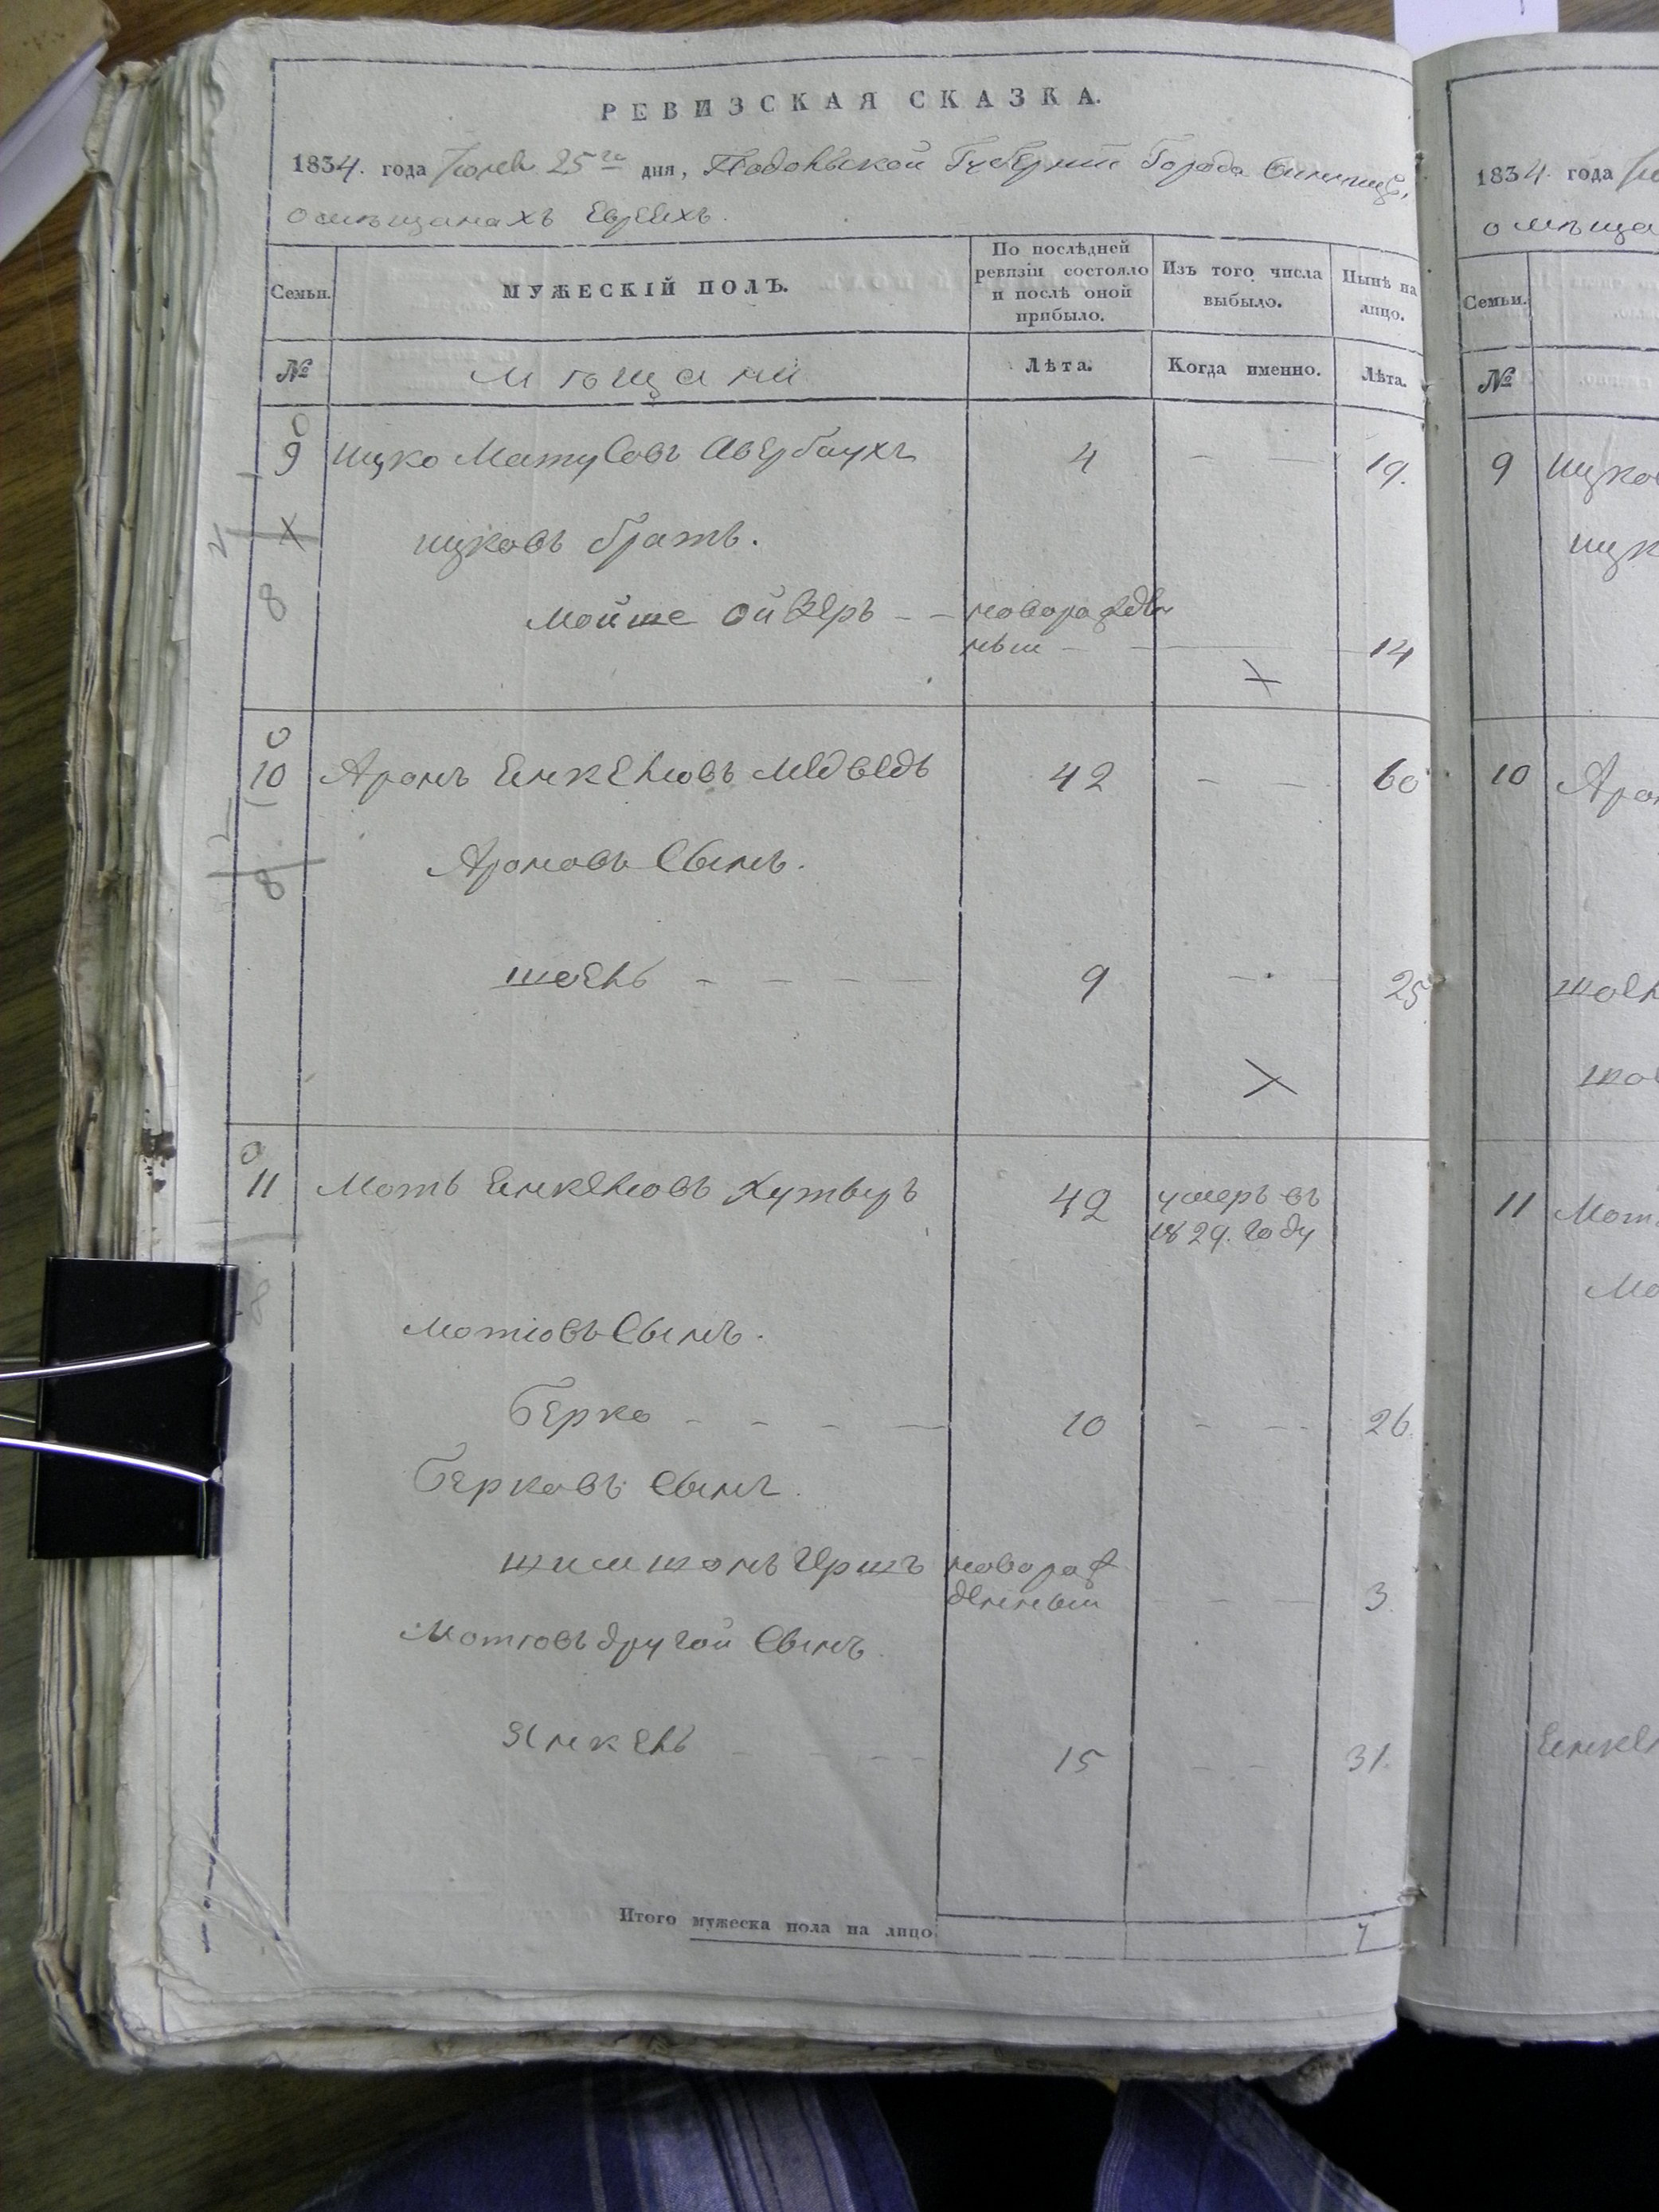 РЕВИЗСКАЯ СКАЗКА.
1834. года 25го дня, Подольской Губернии Города
о мѣщанахъ Евреяхъ.
Семьи.
МУЖЕСКІЙ ПОЛЪ.
По послѣдней ревизіи состояло и послѣ оной прибыло.
Изъ того числа выбыло.
Нынѣ на лицо.
№
Мѣщани
Лѣта.
Когда именно.
Лѣта.
9 Ицко Матусовъ Авербаухъ 4 — — 19.
Ицковъ братъ.
8
Мойше Ойзеръ — — новорожден
ный — 14
10 Аронъ Енкелювъ Медведь 42 — — 60
Ароновъ Сынъ.
8
Шоель — — — — 9 — — 25
11 Моть Енкелювъ Хутыръ 42 умеръ въ
1829. году
8
Мотювъ Сынъ.
Берко — — — — 10 — — 26.
Берковъ Сынъ.
Шимшонъ Гершъ новорож
денный — — — 3
Мотювъ другой Сынъ.
Янкель — — — — 15 — — 31.
Итого мужеска пола на лицо 7
1834. года
о мѣща
Семьи.
№
9 Ицков
Ицк
10 Арон
Шоел
Шо
11 Мот
Мо
Енкел